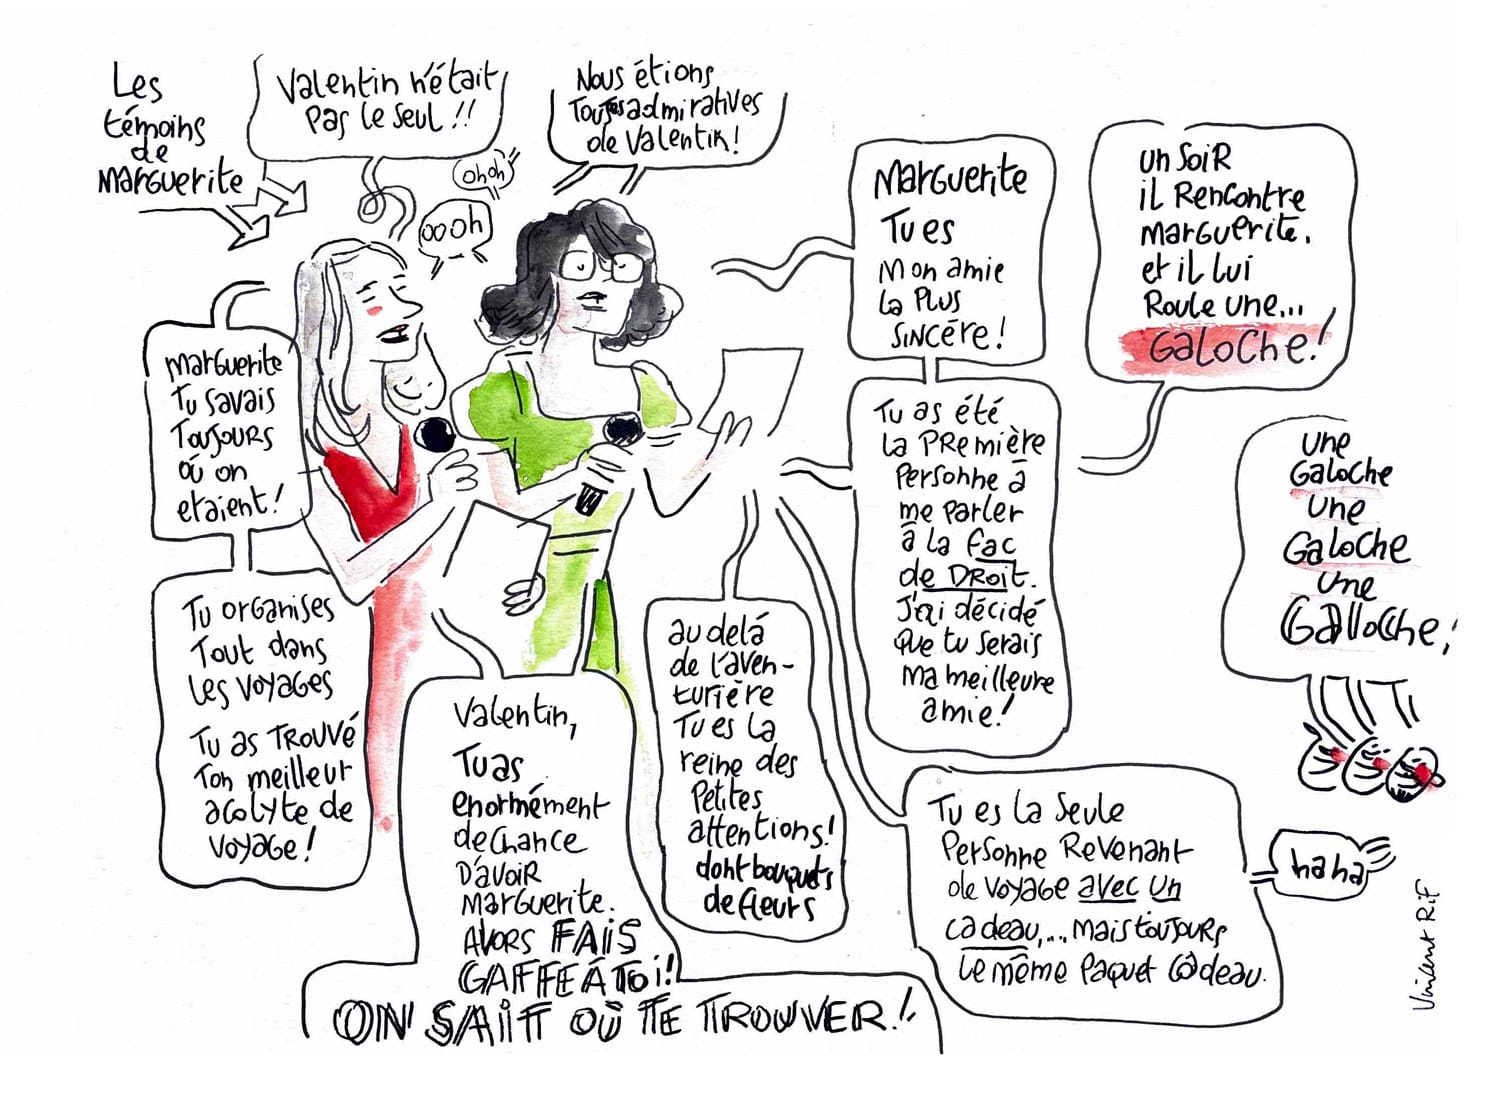 Les
témoins
de
Marguerite
Valentin n'était
pas le seul !!
Nous étions
Toutes admiratives
de Valentin !
ohoh
oooh
Marguerite
Tu savais
Toujours
où on
etaient !
Tu organises
Tout dans
les voyages
Tu as trouvé
Ton meilleur
acolyte de
voyage !
Valentin,
Tu as
enormément
de chance
d'avoir
Marguerite.
Alors FAIS
GAFFE À TOI !
ON SAIT OÙ TE TROUVER !
au delà
de l'aven-
turière
Tu es la
reine des
Petites
attentions !
dont bouquets
de fleurs
Marguerite
Tu es
Mon amie
la plus
sincère !
Tu as été
la première
personne à
me parler
à la fac
de DROIT.
J'ai décidé
que tu serais
ma meilleure
amie !
Tu es la seule
Personne Revenant
de voyage avec un
cadeau,... mais toujours
le même paquet cadeau.
haha
un soir
il rencontre
marguerite.
et il lui
Roule une...
Galoche !
une
Galoche
une
Galoche
une
Galloche !
Vincent Rif